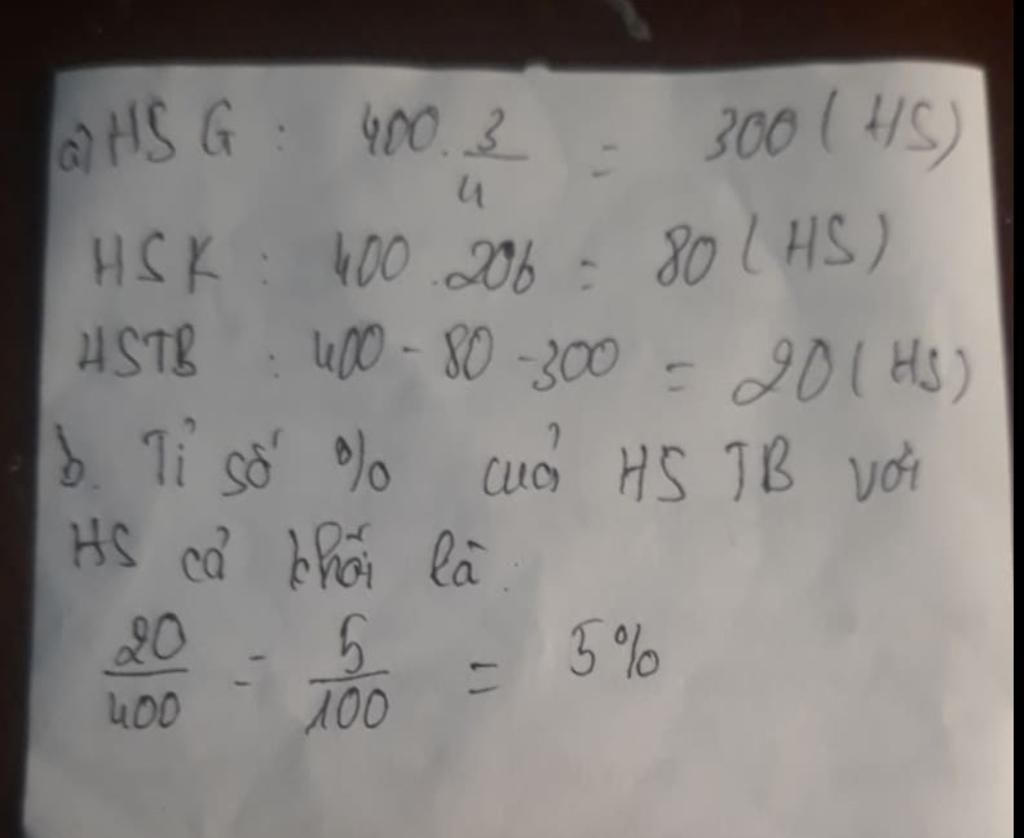 a) HS G : 400 . 3/4 = 300 ( HS )
HS K : 400 . 20% = 80 ( HS )
HSTB : 400 - 80 - 300 = 20 ( HS )
b. Tỉ số % của HS TB với
HS cả khối là :
20/400 = 5/100 = 5%